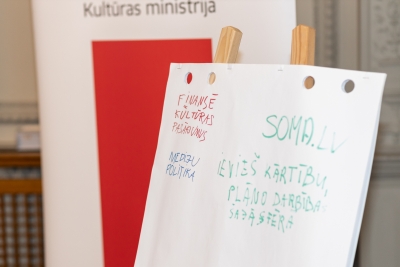 Kultūras ministrija
FINANSĒ
KULTŪRAS
PASĀKUMUS
MEDIJU
POLITIKA
SOMA.LV
IEVIEŠ KĀRTĪBU,
PLĀNO DARBĪBA
SAZĀSFĒRĀ